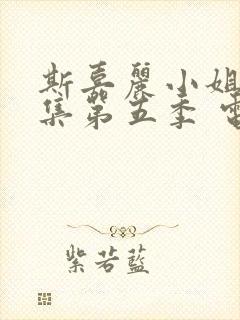 斯嘉麗小姐
集第五季
紫若藍